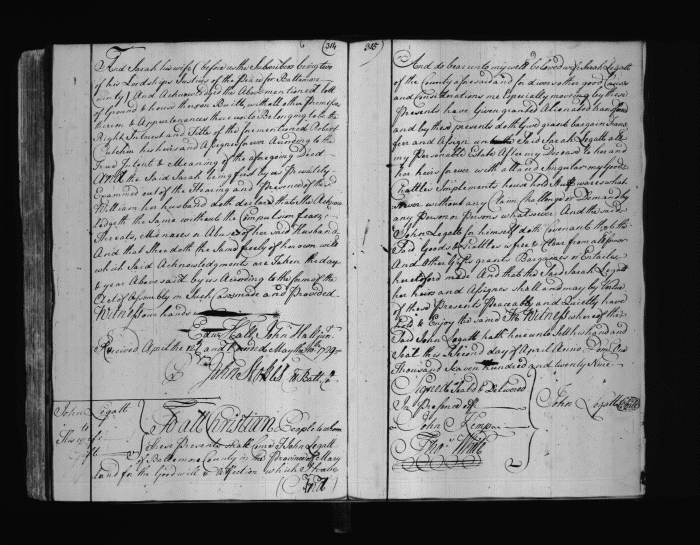 314
And Sarah his wife (before us the Subscribers being two
of his Lordships Justices of the Peace for Baltemore
County) And Acknowledged the Above mentioned lott
of Ground & house thereon Built, with all other premises
thereon & Appurtenances thereunto Belonging to be the
Right Interest and Title of the forementioned Robert
his heirs and Assigns forever According to the
True Intent & Meaning of the aforegoing Deed
And the Said Sarah being first by us Privately
Examined out of the Hearing and Presence of the sd
William her husband doth declare that She Acknow
ledgeth the Same without the Compulsion fears,
Threats, Menaces or Abuse of her said Husband
And that She doth the Same freely of her own will
which Said Acknowledgments are Taken the day
& year Above said by us According to the form of the
Act of Assembly in Such Case made and Provided
Witness our hands
John
Received April the and May the 1729
John
John Legatt
to
his wife
Gift
To all Christian People to whom
these Presents shall come I John Legatt
of Baltemore County in the Province of Mary
land for the Good will & Affection which I
And
315
And do bear unto my well beloved wife Sarah Legatt
of the County aforesaid and for divers other good Causes
and Considerations me Especially moving by these
Presents have Given granted Alienated transferred
and by these presents doth give grant bargain Trans
fer and Assign unto the Said Sarah Legatt all
my Personable Estate After my decease to her and
her heirs forever with all and Singular my Goods
Chattles Implements household Stuff ware what
soever without any Claim Challenge or Demand by
any Person or Persons whatsoever And the said
John Legatt for himself doth Covenant that the
Said Goods & Chattles is free & Clear from all former
And Other Gifts grants Bargains or Entailes
heretofore made And that the Said Sarah Legatt
her heirs and Assigns shall and may by Vertue
of these Presents Peaceably and Quietly have
hold & Enjoy the same In Witness whereof the
Said John Legatt hath hereunto Sett his hand and
Seal this Second day of April Anno Dom One
Thousand Seven hundred and twenty Nine
Signed Seald & Delivered
In presence off
John Legatt
John Kemp
Thos